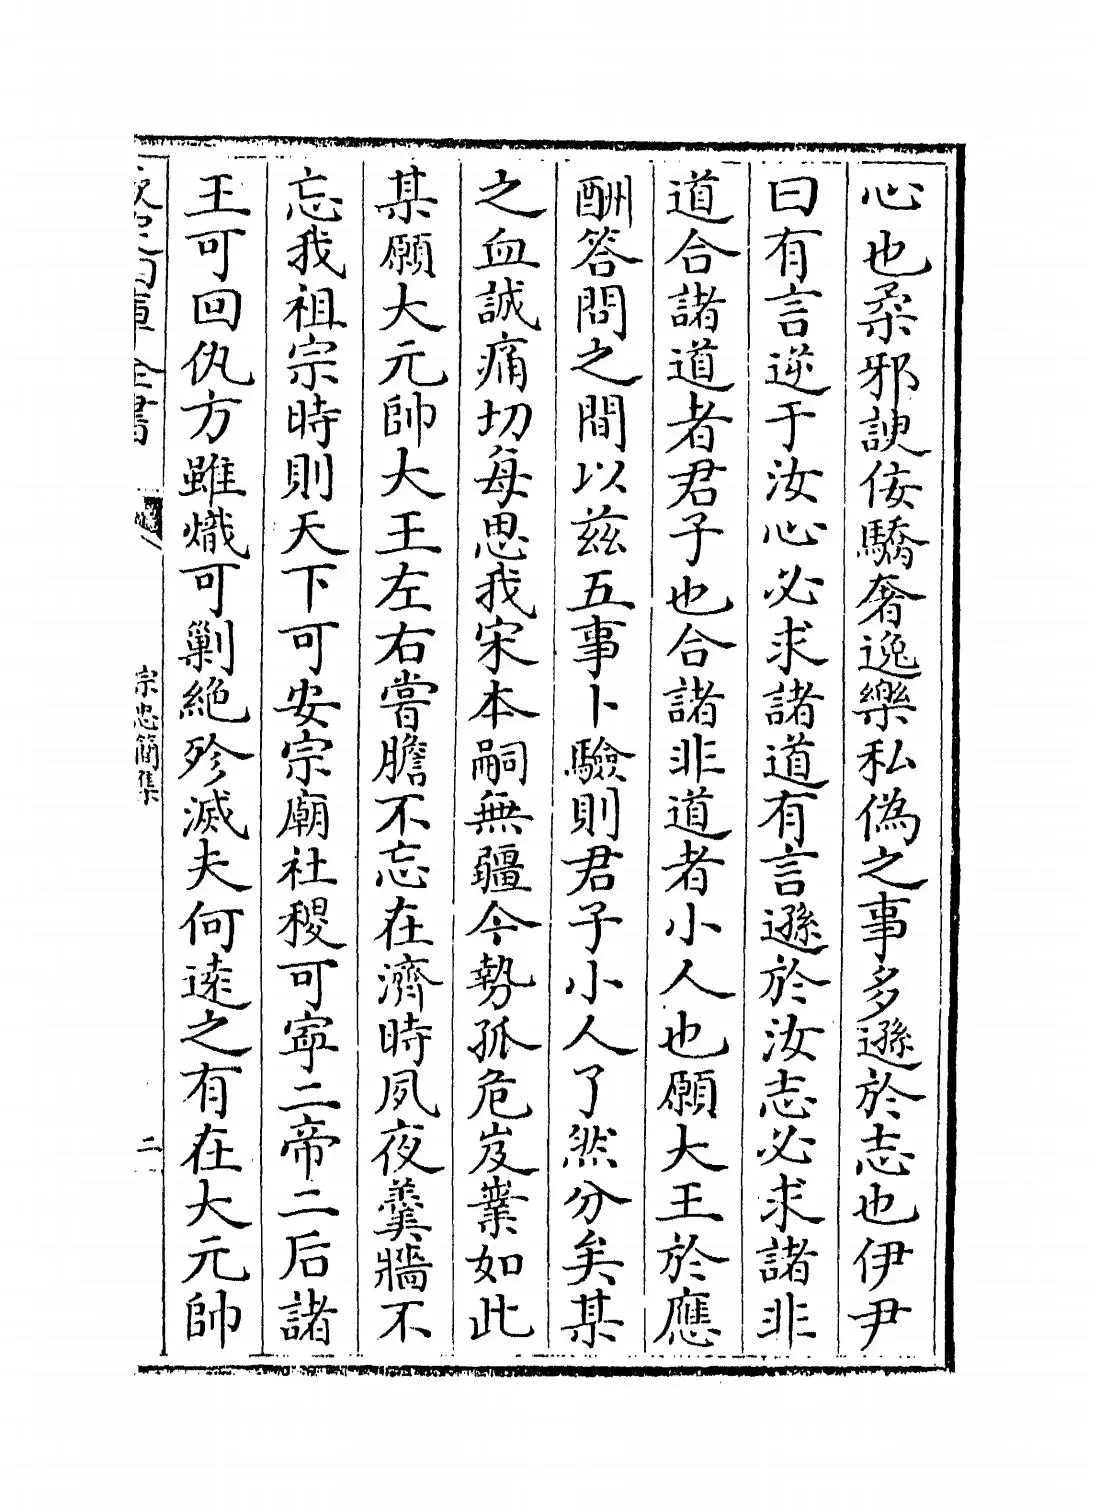 心也柔邪諛佞驕奢逸樂私偽之事多遜於志也伊尹
曰有言逆于汝心必求諸道有言遜於汝志必求諸非
道合諸道者君子也合諸非道者小人也願大王於應
酬答問之間以兹五事卜驗則君子小人了然分矣某
之血誠痛切每思我宋本嗣無疆今勢孤危岌業如此
某願大元帥大王左右嘗膽不忘在濟時夙夜羹牆不
忘我祖宗時則天下可安宗廟社稷可寧二帝二后諸
王可回仇方雖熾可剿絶殄滅夫何逺之有在大元帥
欽定四庫全書
宗忠簡集
二